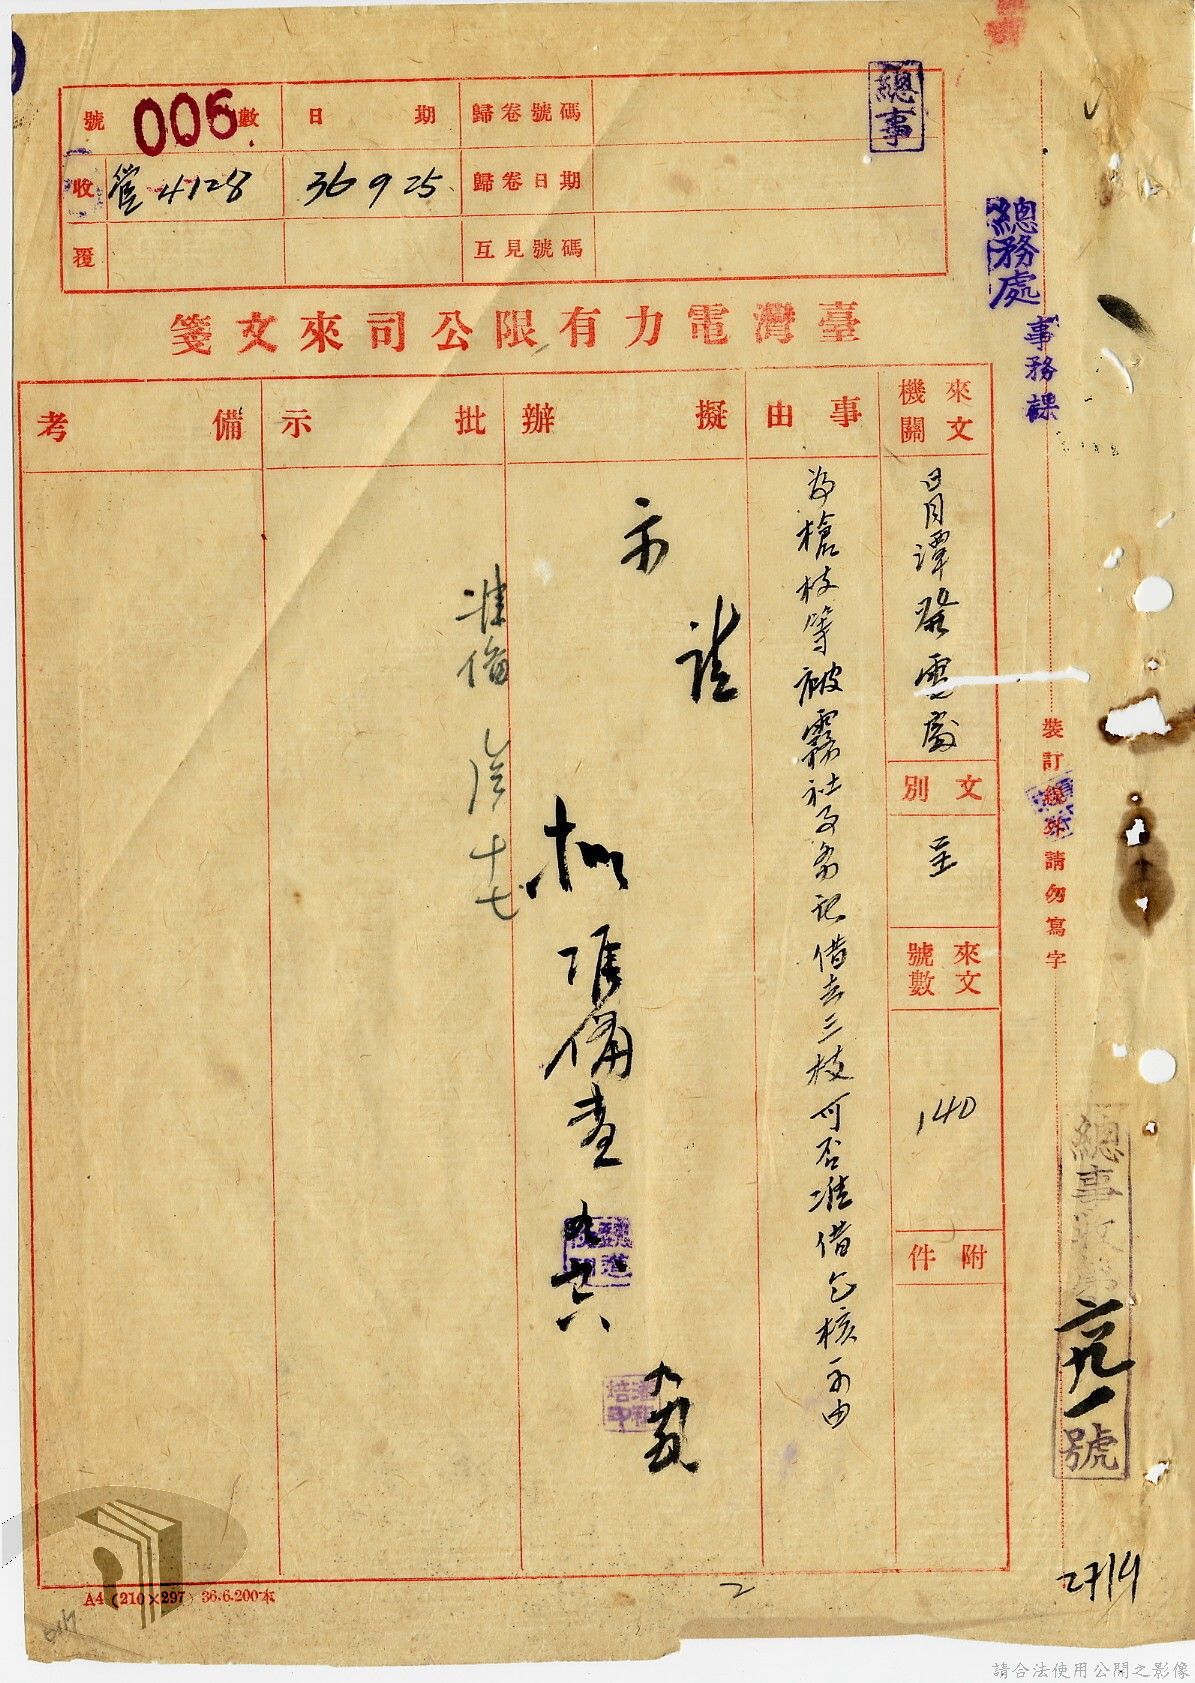 號數 006
日期
歸卷號碼
收
管4128
36 9 25
歸卷日期
覆
互見號碼
總事
總務處
事務課
臺灣電力有限公司來文箋
來文機關
日月潭發電處
文別
呈
來文號數
140
附件
事由
為槍枝等被霧社及 借去三枝可否准借乞核示由
擬辦
請
示
擬准備查
批示
准備
十七
備考
裝訂線外請勿寫字
總事收第 一號
2714
2
A4 (210×297) 36.6.200本
請合法使用公開之影像